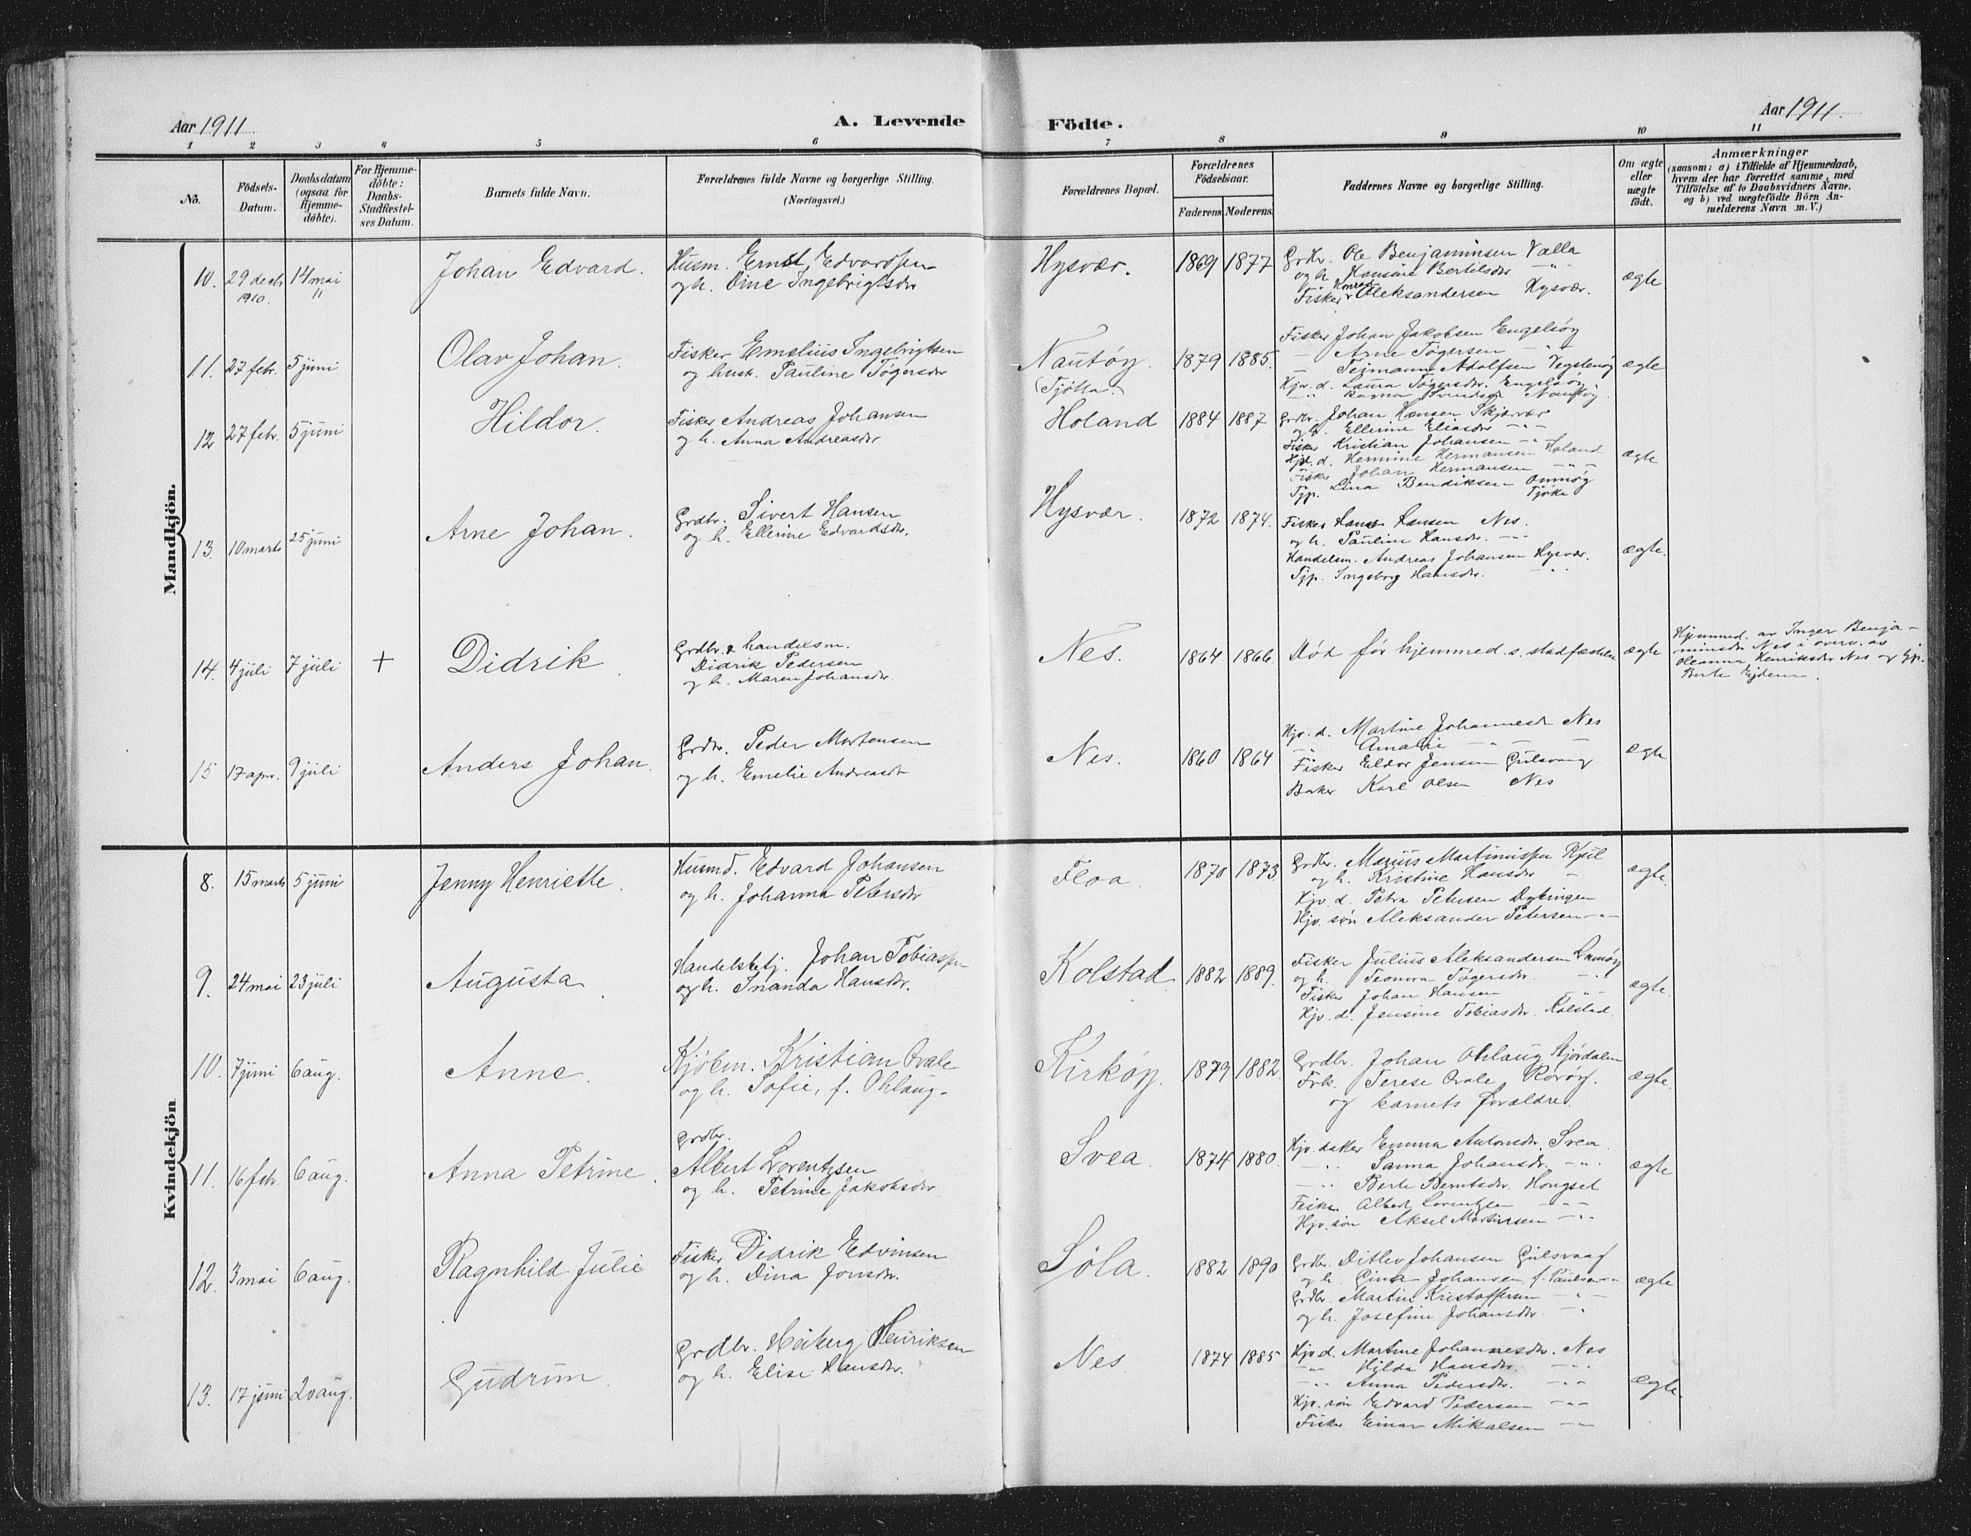 Aar 1911
A. Levende
Födte.
Aar 1911.
1 2 3 4 5 6 7 8 9 10 11
No.
Födsels-
Datum.
Daabsdatum
(ogsaa for
Hjemme-
döbte).
For Hjemme-
döbte:
Daabs-
Stadfæstel-
ses Datum.
Barnets fulde Navn.
Forældrenes fulde Navne og borgerlige Stilling.
(Næringsvei.)
Forældrenes Bopæl.
Forældrenes
Födselsaar.
Faderens. Moderens.
Faddernes Navne og borgerlige Stilling.
Om ægte
eller
uægte
født.
Anmærkninger
(saasom: a) i Tilfælde af Hjemmedaab,
hvem der har forrettet samme, med
Tilföielse af to Daabsvidners Navne,
og b) ved uægtefödte Börn An-
melderens Navn m. V.)
Mandkjön.
10. 29 decbr 1910. 14 mai 11 Johan Edvard.
Husm. Ernst Edvardsen
og h. Orne Ingebrigtsdr
Hysvær. 1869 1877
Grdbr. Ole Benjaminsen Valla
og h. Hansine Bertelsdr -"-
Fisker Konrad Aleksandersen Hysvær.
ægte
11. 27 febr. 5 juni Olav Johan.
Fisker Emelius Ingebrigtsen
og hust. Pauline Tøgersdr
Nautøy.
(Tjøtta)
1879 1885.
Fisker Johan Jakobsen Engelsøy
-"- Arne Tøgersen -"-
-"- Teimann Adolfsen Vegstenøy
Hjv. d. Laura Tøgersdr. Engelsøy.
-"- Ragna Svendsen Nautøy.
ægte
12 27 febr. 5 juni Hildor.
Fisker Andreas Johansen
og h. Anna Andreasdr
Holand 1884 1887
Grdbr. Johan Hansen Skjærvær
og h. Ellerine Eliasdr -"-
Fisker Kristian Johansen -"- Holand
Hjv. d. Hermine Hermansen
Fisker Johan Hermansen -"-
Tjp. Lina Bendiksen Omnøy
Tjøtta
ægte
13. 10 marts 25 juni Arne Johan.
Grdbr. Sivert Hansen
og h. Ellerine Edvardsdr.
Hysvær. 1872 1874.
Fisker Hans Hansen Nes.
og h. Pauline Hansdr. -"-
Handelsm. Andreas Johansen Hysvær.
Tjp. Ingeborg Hansdr. -"-
ægte.
14. 4 juli 7 juli + Didrik.
Grdbr. & handelsm.
Didrik Pedersen
og h. Maren Johansdr
Nes. 1864 1866
Død før hjemmed. s. stadfæstelse
ægte
Hjemmed. av Inger Benja-
minsdr. Nes i overv. av
Oleanna Henriksdr Nes og Tjp.
Berte Eijdem.
15 17 apr. 9 juli Anders Johan.
Grdbr. Peder Mortensen
og h. Emelie Andreasdr
Nes. 1860 1864
Hjv. d. Martine Johannesdr Nes
-"- Amalie -"- -"-
Fisker Eldor Jensen Gulsvaag
Baker Karl Olsen Nes
ægte
Kvindekjön
8. 15 marts 5 juni Jenny Henriette.
Husmd. Edvard Johansen
og h. Johanna Petersdr
Floa. 1870 1873
Grdbr. Marius Martinussen Kjul
og h. Kristine Hansdr -"-
Hjv. d. Petra Petersen Dykingen
Hjv. søn Aleksander Petersen -"-
ægte.
9. 24 mai 23 juli Augusta.
Handelsbetj. Johan Tobiassen
og h. Inanda Hansdr.
Kolstad 1882 1889.
Fisker Julius Aleksandersen Lamøy
og h. Teonora Tøgersdr. -"-
Fisker Johan Hansen -"-
Hjv. d. Jensine Tobiasdr. Kolstad.
ægte.
10. 7 juni 6 aug. Anne.
Kjøbm. Kristian Qvale
og h. Sofie, f. Ohlaug-
Kirkøy. 1879 1882.
Grdbr. Johan Ohlaug Hjørdalen
Frk. Terese Qvale Rørøy.
og barnets forældre.
ægte.
11. 16 febr. 6 aug. Anna Petrine.
Grdbr.
Albert Lorentzsen
og h. Petrine Jakobsdr
Svea. 1874 1880.
Hjv. døtter Emma Antonsdr. Svea
-"- Sanna Johansdr. -"-
-"- Berte Berntsdr. Hongset
Fisker Albert Lorentzsen -"-
Hjv. søn Aksel Martinsen -"-
ægte
12. 3 mai 6 aug. Ragnhild Julie
Fisker Didrik Edvinsen
og h. Dina Jonsdr.
Søla. 1882 1890
Grdbr. Ditlev Johansen Gulsvaag
og h. Gina Johansen f. Paulsen -"-
Grdbr. Martin Kristoffersen -"-
og h. Josefine Johansdr. -"-
ægte
13. 17 juni 20 aug. Gudrun.
Grdbr. Heiberg Henriksen
og h. Elise Hansdr.
Nes. 1874 1885
Hjv. d. Martine Johannesdr. Nes
-"- Hilda Hansdr. -"-
-"- Anna Pedersdr. -"-
Hjv. søn Edvard Pedersen -"-
Fisker Einar Mikalsen -"-
ægte.